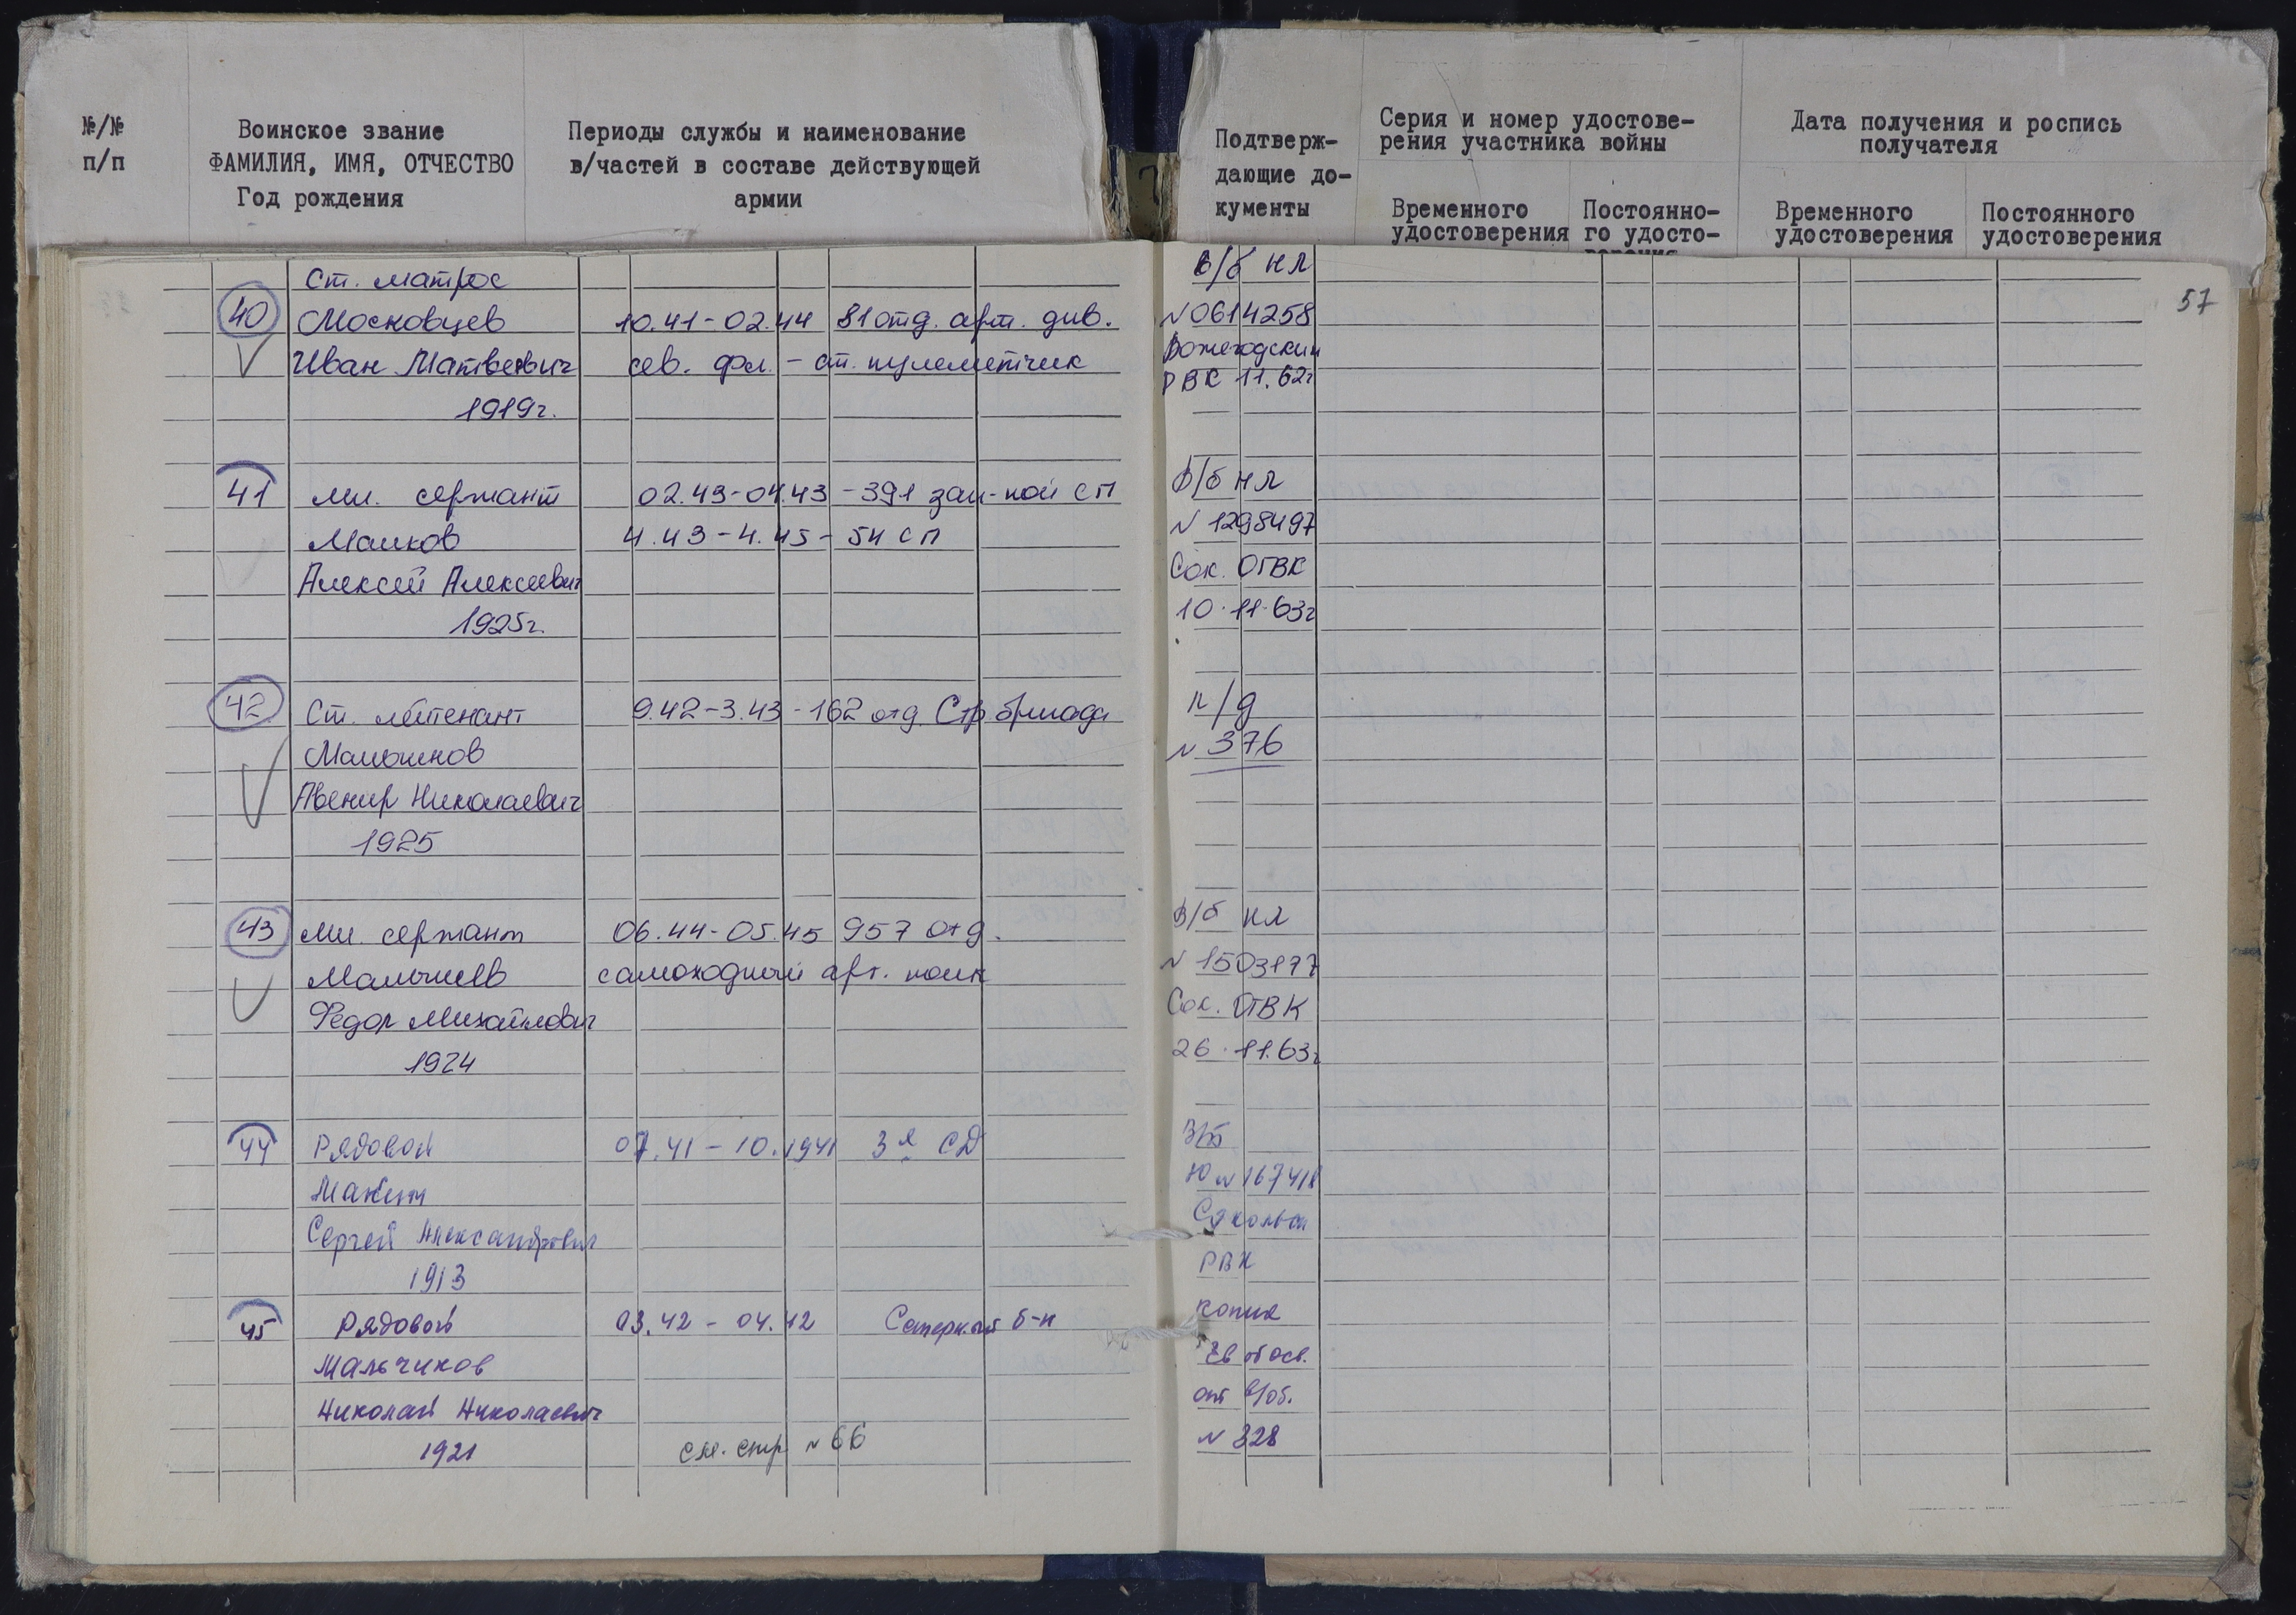 №/№
п/п
Воинское звание
ФАМИЛИЯ, ИМЯ, ОТЧЕСТВО
Год рождения
Периоды службы и наименование
в/частей в составе действующей
армии
Подтверж-
дающие до-
кументы
Серия и номер удостове-
рения участника войны
Временного
удостоверения
Постоянно-
го удосто-
Дата получения и роспись
получателя
Временного
удостоверения
Постоянного
удостоверения
57
Ст. матрос
40 Московцев
Иван Матвеевич
1919г.
10.41-02.44 81 отд. арт. див.
сев. фл. - ст. пулеметчик
В/б НЛ
N 0614258
Вожегодский
РВК 11.62г
41 Мл. сержант
Малков
Алексей Алексеевич
1925г.
02.43-04.43 - 391 зап-ной СП
4.43-4.45 - 54 СП
В/б НЛ
N 1298497
Сок. ОГВК
10.11.63г
42 Ст. лейтенант
Авенир Николаевич
1925
9.42-3.43 - 162 отд Стр бригада
л/д
N 376
43 Мл. сержант
Малышев
Федор Михайлович
1924
06.44-05.45 957 отд.
самоходный арт. полк
В/б НЛ
N 1503177
Сок. ОГВК
26.11.63г
44 Рядовой
Сергей Александрович
1913
07.41 - 10.1941 3я СД
В/б
Ю N 167418
РВК
45 Рядовой
Мальчиков
Николай Николаевич
1921
03.42 - 04.42 Саперный б-н
см. стр N 66
копия
Св об осв.
от в/об.
N 328